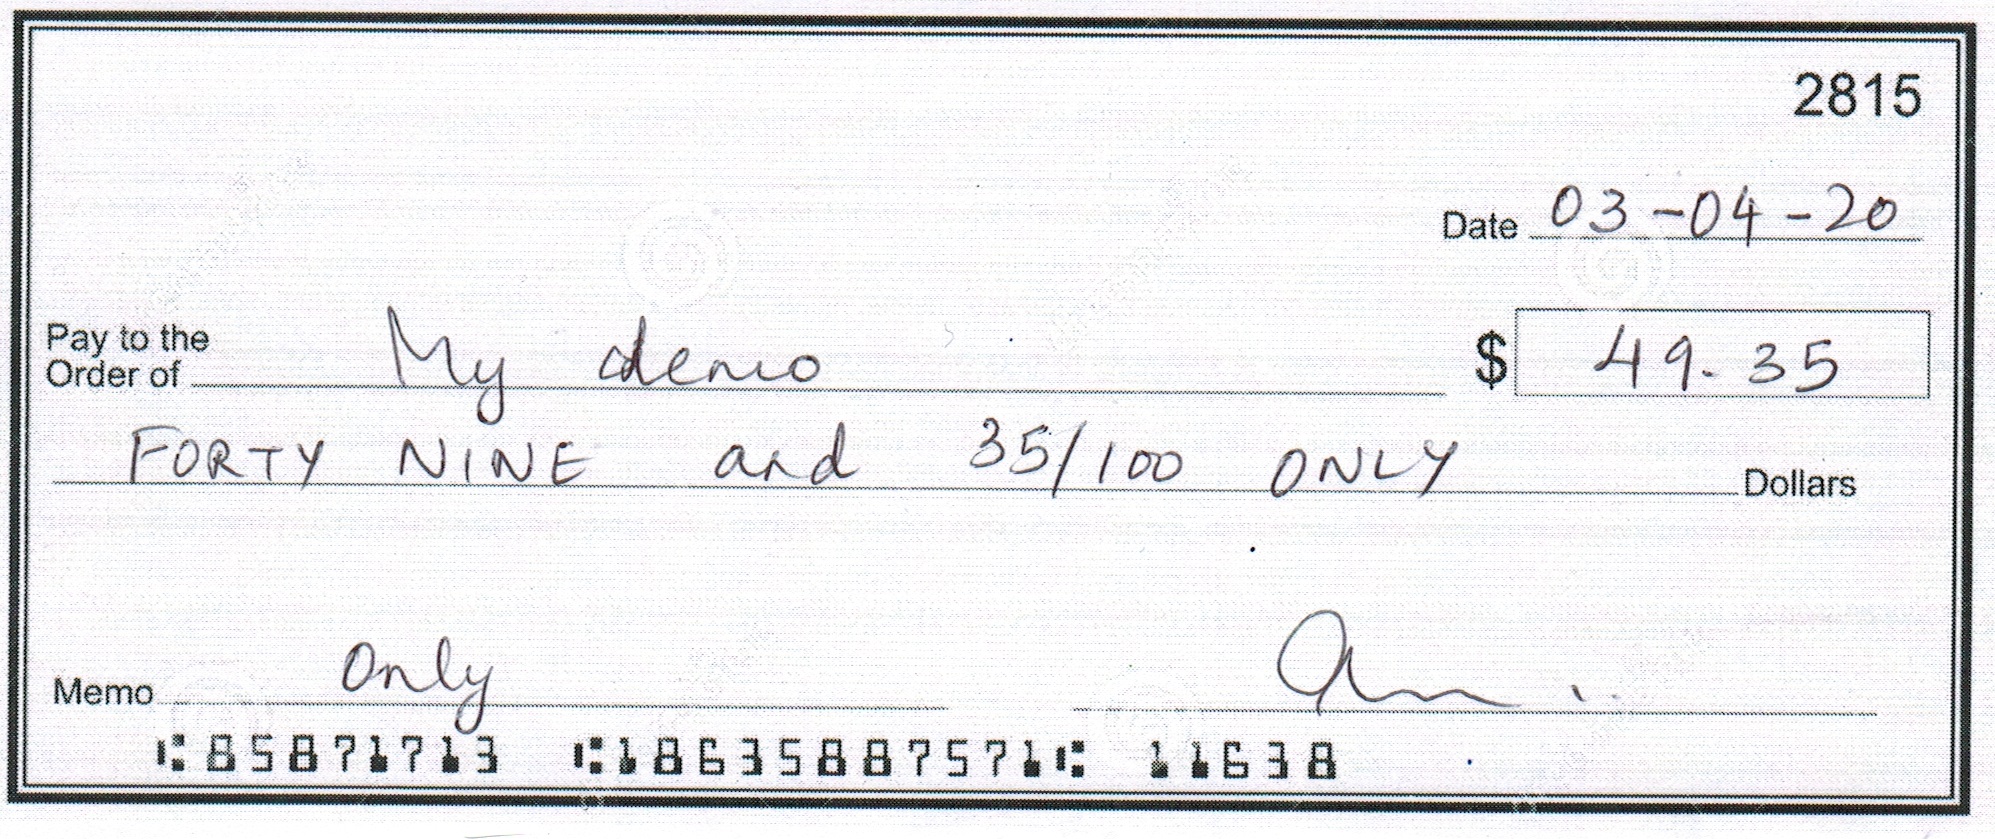 2815
Date 03-04-20
Pay to the
Order of My demo $ 49.35
FORTY NINE and 35/100 ONLY Dollars
Memo Only
⑆85871713 ⑆18635887571⑆ 11638